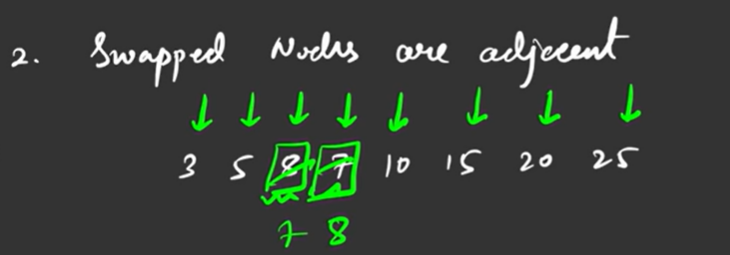 2. Swapped Nodes are adjacent
3 5 8 7 10 15 20 25
7 8